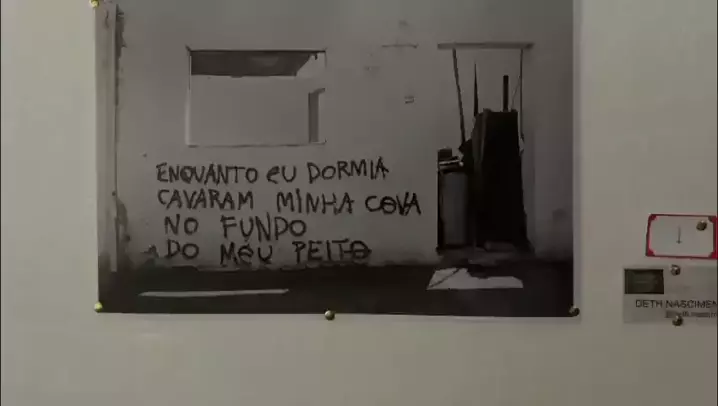 ENQUANTO EU DORMIA
CAVARAM MINHA COVA
NO FUNDO
DO MEU PEITO
1
DETH NASCIMEN